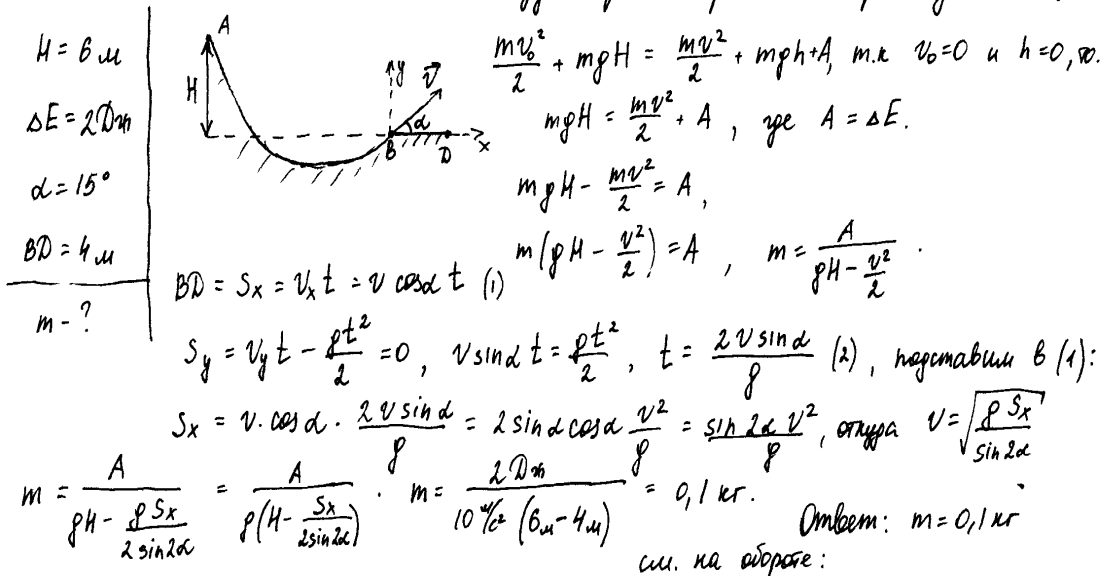 H = 6 м
ΔE = 2 Дж
α = 15°
BD = 4 м
m - ?
A
H
y
v
α
B
D
x
mv₀²/2 + mgH = mv²/2 + mgh + A, т.к v₀=0 и h=0, то.
mgH = mv²/2 + A , где A = ΔE.
mgH - mv²/2 = A ,
m(gH - v²/2) = A , m = A/(gH - v²/2) .
BD = Sx = Vx t = v cosα t (1)
Sy = Vy t - gt²/2 = 0 , v sinα t = gt²/2 , t = 2v sinα/g (2) , подставим в (1):
Sx = v · cosα · 2v sinα/g = 2 sinα cosα v²/g = sin2α v²/g , откуда v = √(g Sx/sin2α)
m = A/(gH - g Sx/(2 sin2α)) = A/(g(H - Sx/(2sin2α))) . m = 2 Дж/(10 м/с² (6м - 4м)) = 0,1 кг.
Ответ: m = 0,1 кг
см. на обороте: